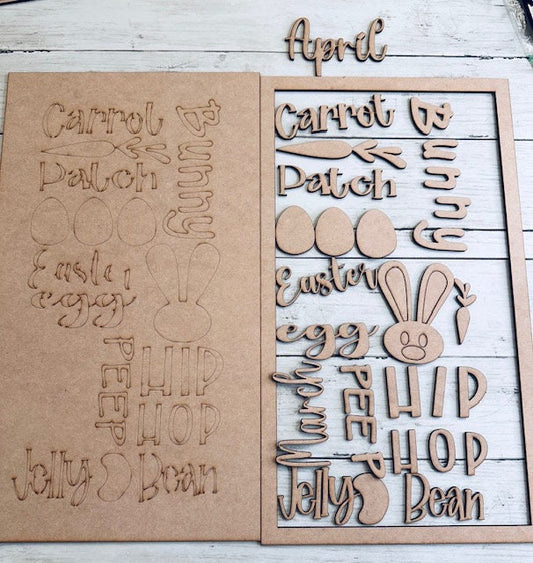 April
Carrot
Bunny
Patch
Easter
egg
PEEP
HIP
HOP
Jelly Bean
Carrot
Bunny
Patch
Easter
egg
March
PEEP
HIP
HOP
Jelly Bean